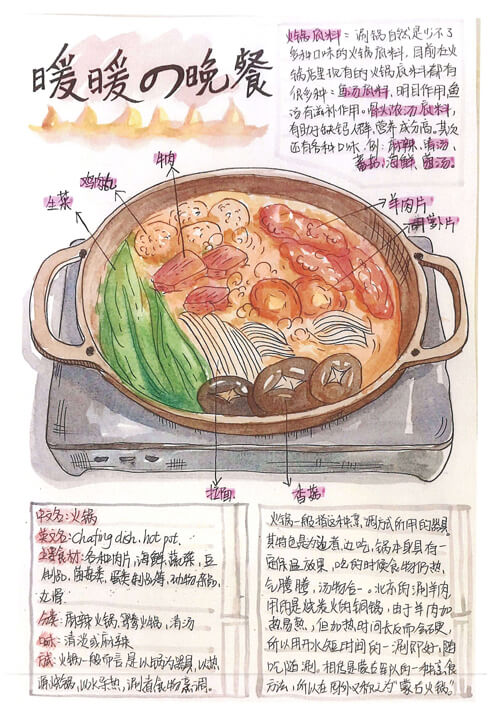 暖暖の晚餐
火锅底料：涮锅自然是少不了
多种口味的火锅底料，目前在火
锅店里现有的火锅底料都有
很多种：鱼汤底料，明目作用鱼
汤有滋补作用。骨头浓汤底料，
有助于缺钙人群，营养成分高。其次
还有多种口味，例：麻辣、清汤、
番茄、海鲜、菌汤。
牛肉
鸡肉丸
生菜
羊肉片
胡萝卜片
拉面
香菇
中文名：火锅
英文名：chafing dish. hot pot.
主要食材：各种肉片，海鲜，蔬菜，豆
制品，菌菇类，蛋类制品等，动物
丸滑
麻辣火锅，清汤
口味：清淡或麻辣
火锅一般而言是以锅为器具，以热
源烧锅，以水导热，涮煮食物烹调。
火锅一般指这种烹调方式所用的器具。
其特色是为边煮边吃，锅本身具有一
定保温效果，吃的时候食物仍热
气腾腾，汤物合一。北京的涮羊肉
用的是烧炭火的铜锅，由于羊肉加
热易熟，但加热时间长反而会硬，
所以用开水短时间的一涮即好，随
吃随涮。相传是蒙古军队的一种速食
方法，所以在国外又称之为"蒙古火锅"